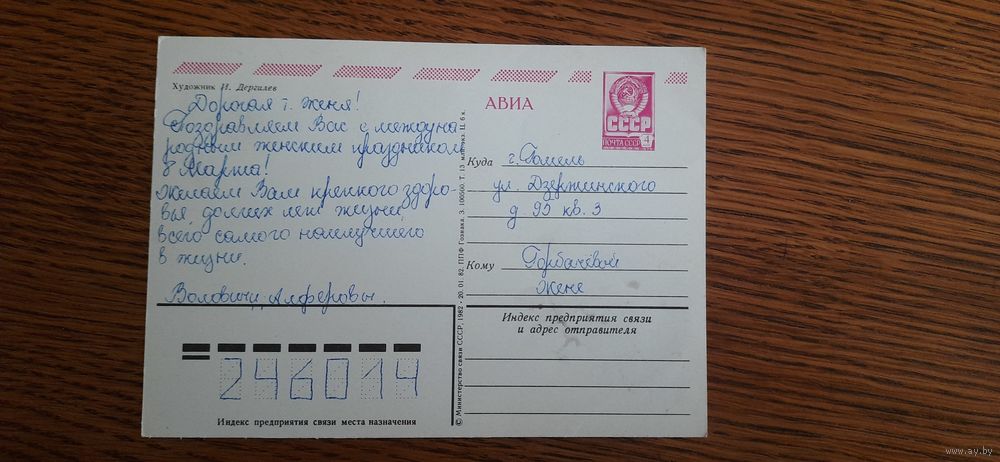 Художник И. Дергилев
Дорогая т. Женя!
Поздравляем Вас с междуна
родным женским праздником
8 Марта!
Желаем Вам крепкого здоро-
вья, долгих лет жизни,
всего самого наилучшего
в жизни.
Воловичи, Алферовы.
246014
Индекс предприятия связи места назначения
© Министерство связи СССР, 1982 · 20. 01. 82. ППФ Гознака. З. 100560. Т. 13 млн. экз. Ц. 6 к.
АВИА
СССР
ПОЧТА СССР 4
Куда г. Гомель
ул. Дзержинского
д. 95 кв. 3
Кому Горбачёвой
Жене
Индекс предприятия связи
и адрес отправителя
www.ay.by